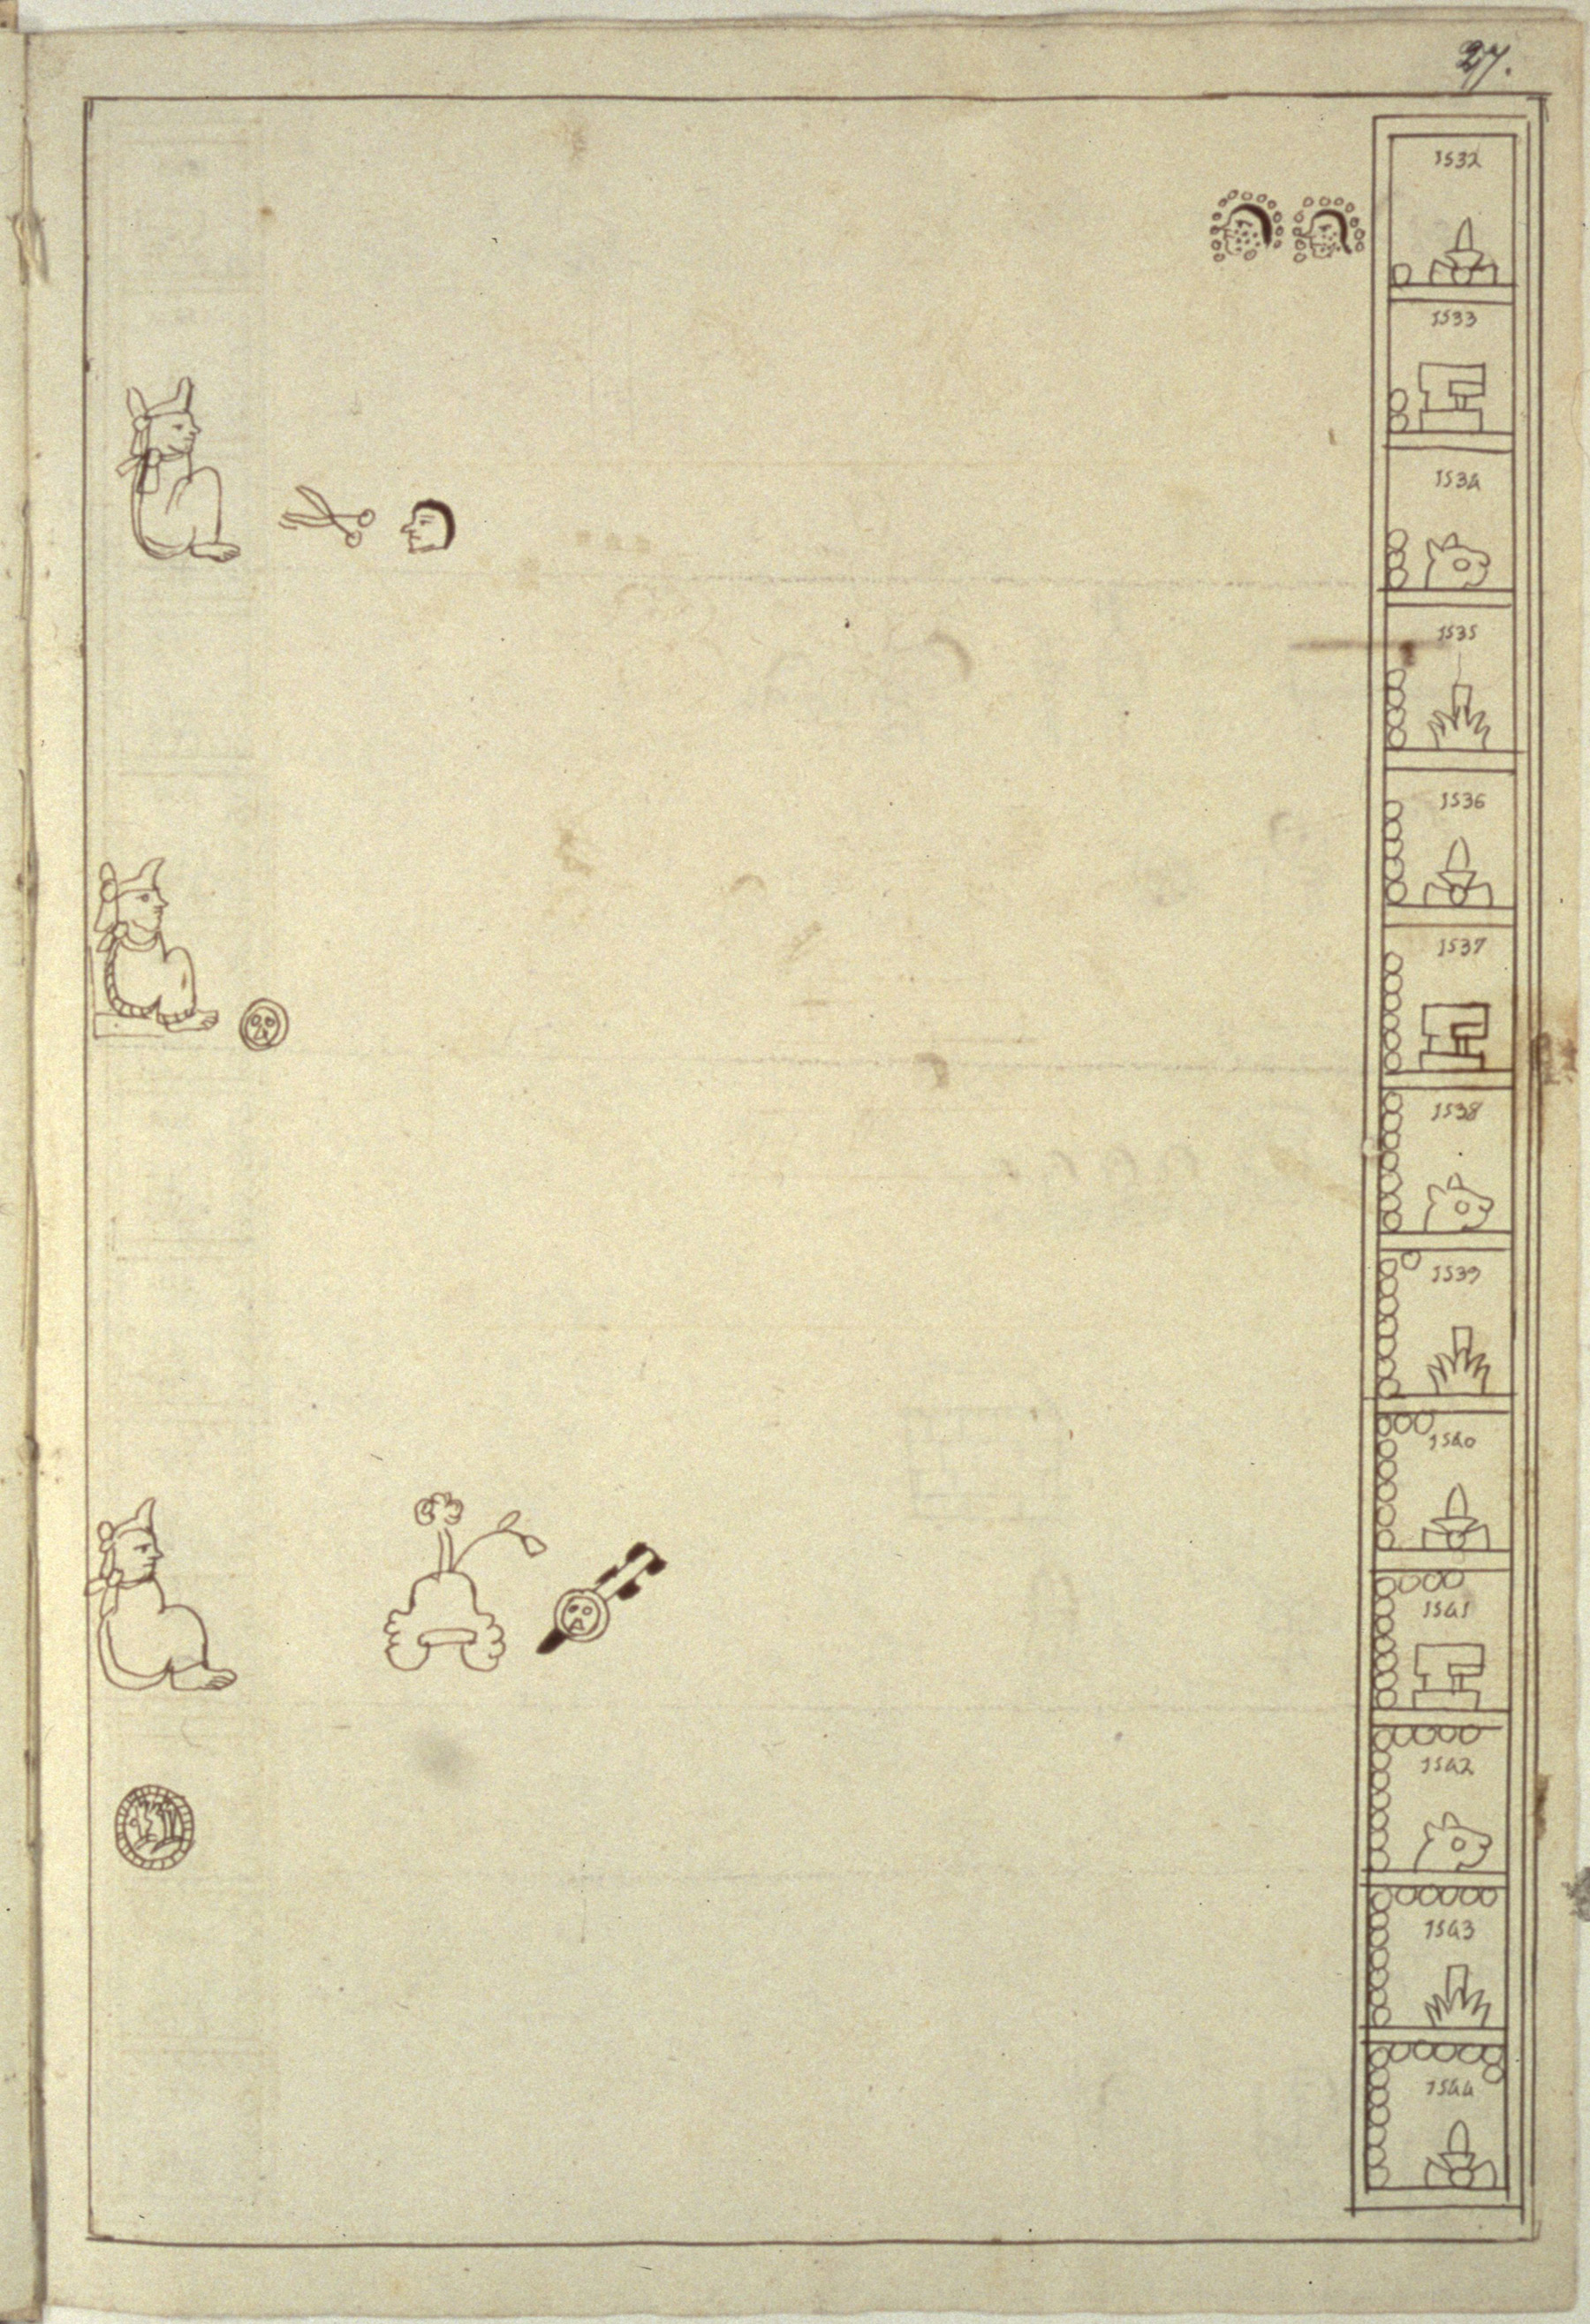 27.
1532
1533
1534
1535
1536
1537
1538
1539
1540
1541
1542
1543
1544